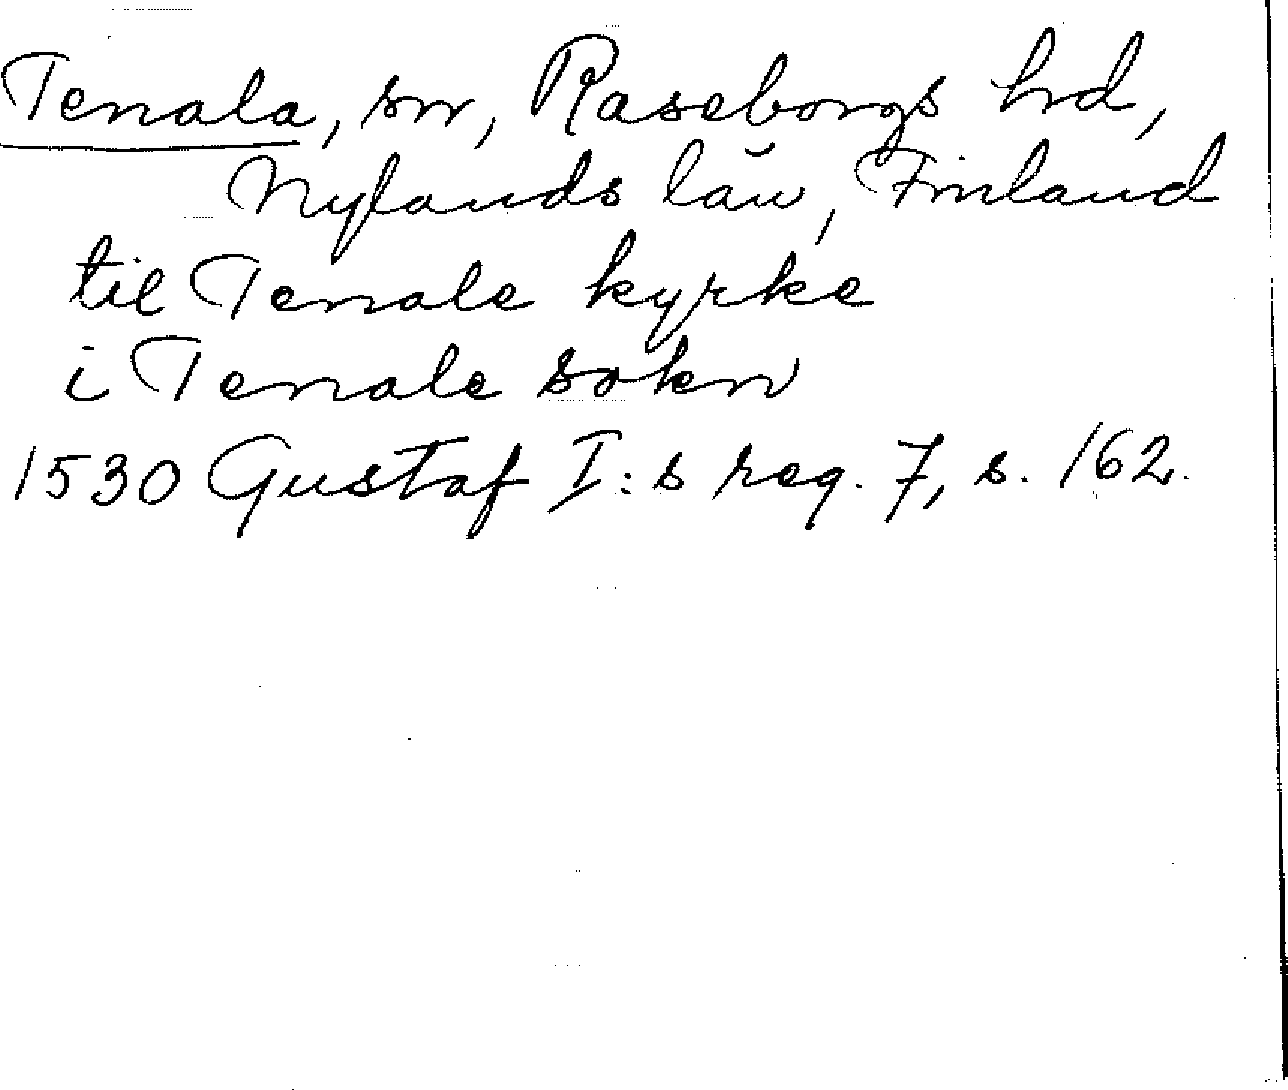 Tenala, sn, Raseborgs hrd,
Nylands län, Finland
til Tenale kyrke
i Tenale sokn
1530 Gustaf I:s reg. 7, s. 162.